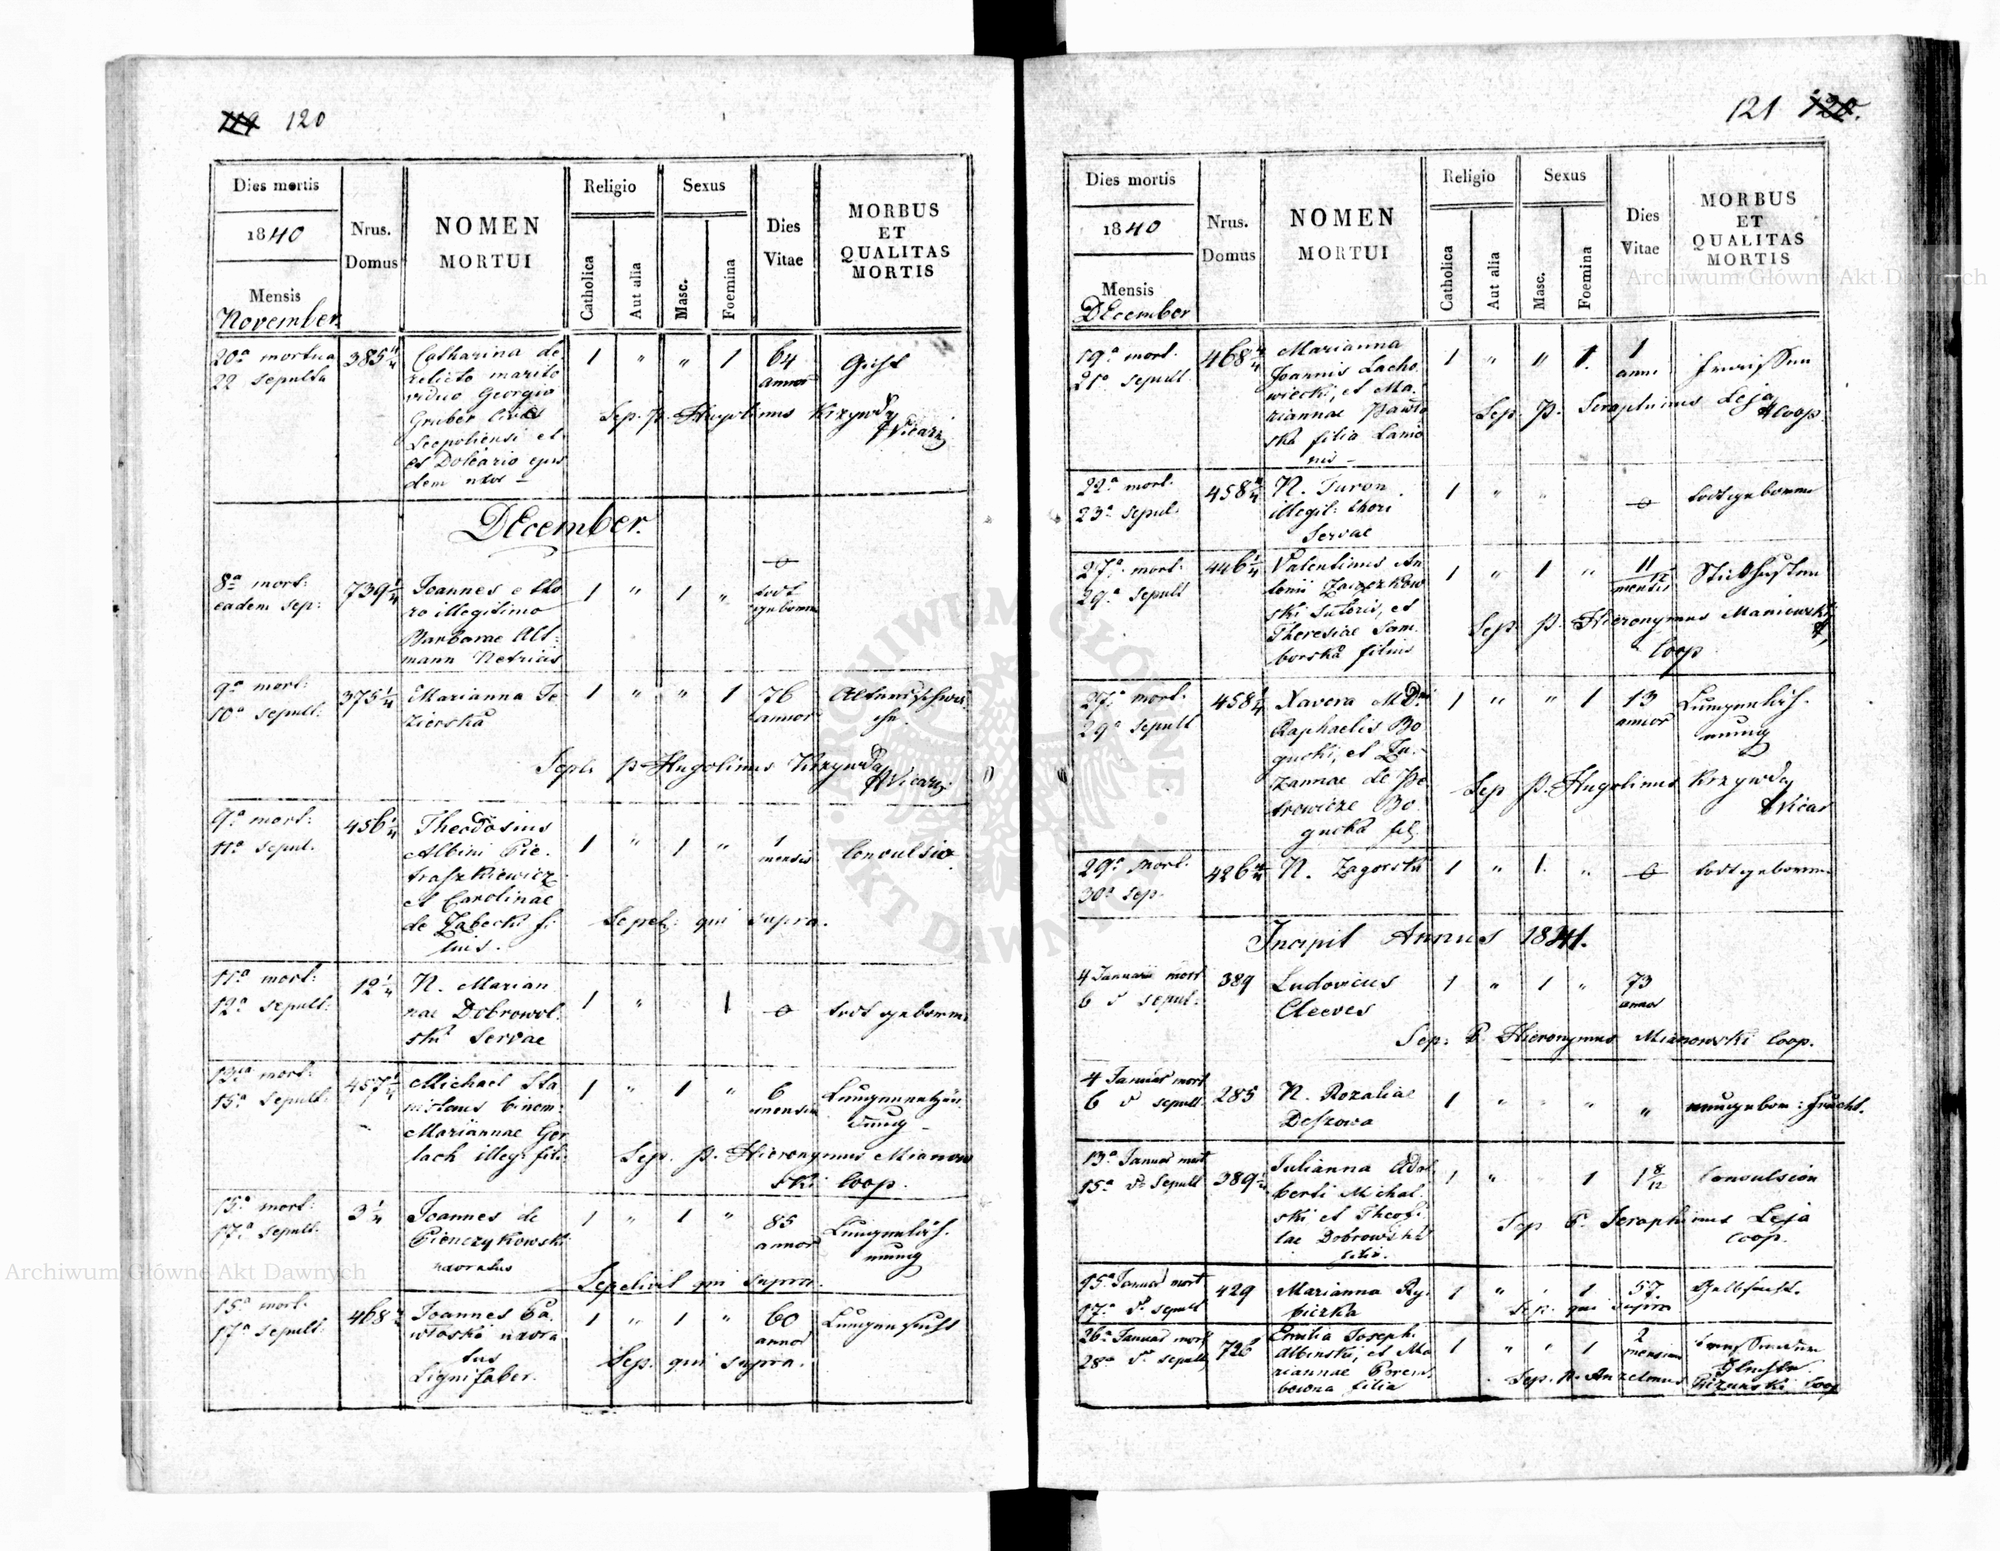 119 120
Dies mortis
1840
Mensis
November
Nrus.
Domus
NOMEN
MORTUI
Religio
Catholica
Aut alia
Sexus
Masc.
Foemina
Dies
Vitae
MORBUS
ET
QUALITAS
MORTIS
20a mortua
22 sepulta
385 4/4
Catharina de
relicto marito
viduo Georgio
Gruber Cive
Leopoliensi et
et Doleario ejus
dem uxor
1 " " 1
64
annor
Gicht
Sep. P. Hugolinus Krzywda
Vicari
DEcember.
8a mort:
eadem sep:
739 1/4
Joannes e tho
ro illegitimo
Barbarae Alt:
mann Netricis
1 " 1 "
0
todt
geboren
9a mort:
10a sepult:
375 1/4
Marianna Je
zierska
1 " " 1
76
annor
Altersschwä
che.
Sepel. P. Hugolinus Krzywda
Vicari
9a mort:
11a sepul.
456 1/4
Theodosius
Albini Pie
traszkiewicz
et Carolinae
de Zabecki fi
lius.
1 " 1 "
1
mensis
Convulsio
Sepel: qui supra.
11a mort:
12a sepult:
12 1/4
N. Marian
nae Dobrowol
ska Servae
1 " 1
0
todt geboren
13a mort:
15a sepult:
457 1/4
Michael Sta
nislaus binom:
Mariannae Ger
lach illeg: fili:
1 " 1 "
6
mensium
Lungenentzün
dung
Sep. P. Hieronymus Mianow
ski Coop.
15a mort:
17a sepult.
3 1/4
Joannes de
Pienczykowski
uxoratus
1 " 1 "
85
annor
Lungenläh-
mung
Sepelivit qui supra.
15a mort.
17a sepult:
468
Joannes Pa
wloski uxora
tus
Lignifaber.
1 " 1 "
60
annor
Lungensucht
Sep. qui supra.
121 120.
Dies mortis
1840
Mensis
DEcember
Nrus.
Domus
NOMEN
MORTUI
Religio
Catholica
Aut alia
Sexus
Masc.
Foemina
Dies
Vitae
MORBUS
ET
QUALITAS
MORTIS
19a mort.
21a sepult
468 4/4
Marianna
Joannis Lacho
wiecki, et Ma
riannae Pawlo
ska filia Lanio
nis
1 " " 1.
1
anni
Sep. P. Seraphinus Leja
Coop.
22a mort.
23a sepul.
458 4/4
N. Turon
illegit: thori
Servae
1 " "
0
todtgeboren
27a mort:
29a sepult
446 1/4
Valentinus An
tonii Zajączkow
ski Sutoris, et
Theresiae Sam
borska filius
1 " 1 "
11/12
mensis
Stickhusten
Sep. P. Hieronymus Maniowski
Coop
27a mort.
29a sepult
458 1/4
Xavera M.D.
Raphaelis Bo
gucki, et Zu
zannae de Pe
trowicze Bo
gucka fil.
1 " " 1
13
annor
Lungenläh-
mung
Sep P. Hugolinus Krzywda
Vicar
29a mort.
30a sep.
426 4/4
N. Zagorski
1 " 1. "
0
todtgeboren
Incipit Annus 1841.
4 Januarii mort
6 d sepul.
389
Ludovicus
Cleeves
1 " 1 "
73
annor
Sep: P. Hieronymus Mianowski Coop.
4 Januar mort
6 d sepult
285
N. Rozaliae
Deszowa
1 " " " "
13a Januar mort
15a d. sepult
389 1/4
Julianna Adal
berti Michal
ski et Theofi
lae Dobrowska
filia.
1 " 1
1 8/12
Convulsion
Sep P. Seraphinus Leja
Coop.
15a Januar mort
17a d. sepult
429
Marianna Ry
biczka
1 " " 1
57.
Gelbsucht.
Sep: qui supra
26a Januar mort
28a d. sepult
726
Emilia Joseph:
Albinski, et Ma
riannae Porem
bowna filia
1 " " 1
2
mensium
Sep. P. Anzelmus
Coop
Archiwum Główne Akt Dawnych
Archiwum Główne Akt Dawnych
ARCHIWUM GŁÓWNE
AKT DAWNYCH